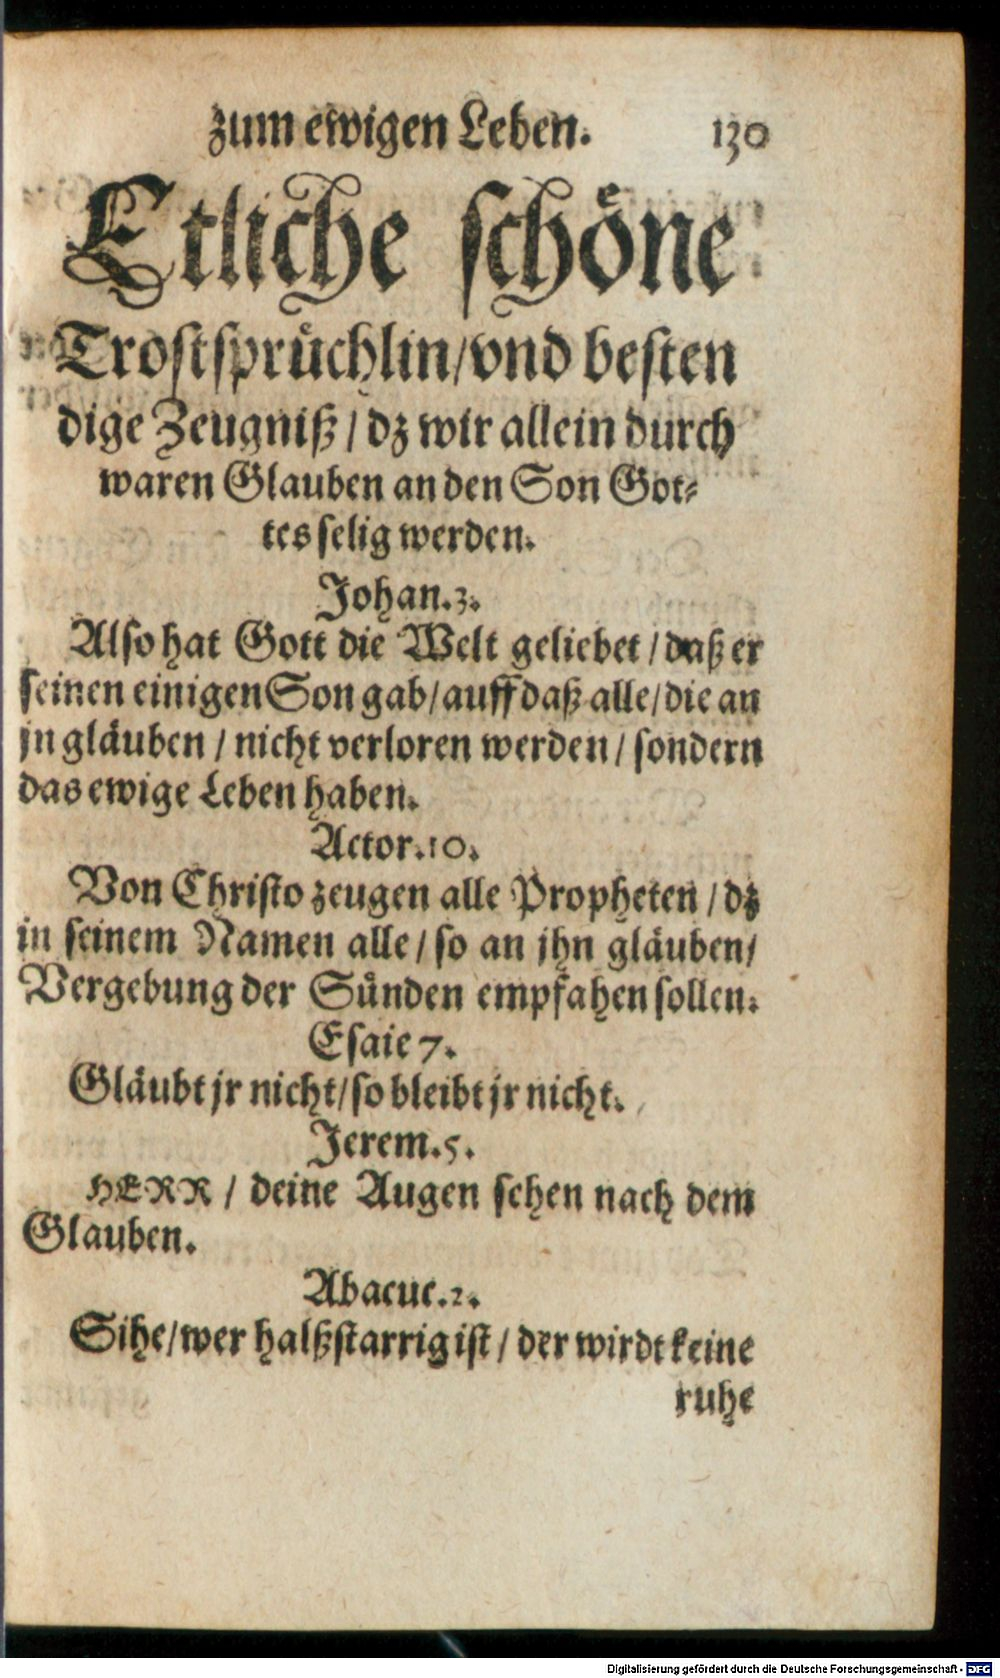 zum ewigen Leben. 130
Etliche schöne
Trostsprüchlin/vnd besten
dige Zeugniß/dz wir allein durch
waren Glauben an den Son Got⸗
tes selig werden.
Johan.3.
Also hat Gott die Welt geliebet/daß er
seinen einigen Son gab/auff daß alle/die an
jn gläuben/nicht verloren werden/sondern
das ewige Leben haben.
Actor.10.
Von Christo zeugen alle Propheten/dz
in seinem Namen alle/so an jhn gläuben/
Vergebung der Sünden empfahen sollen.
Esaie 7.
Gläubt jr nicht/so bleibt jr nicht.
Jerem.5.
HERR/deine Augen sehen nach dem
Glauben.
Abacuc.2.
Sihe/wer halßstarrig ist/der wirdt keine
ruhe
Digitalisierung gefördert durch die Deutsche Forschungsgemeinschaft - DFG